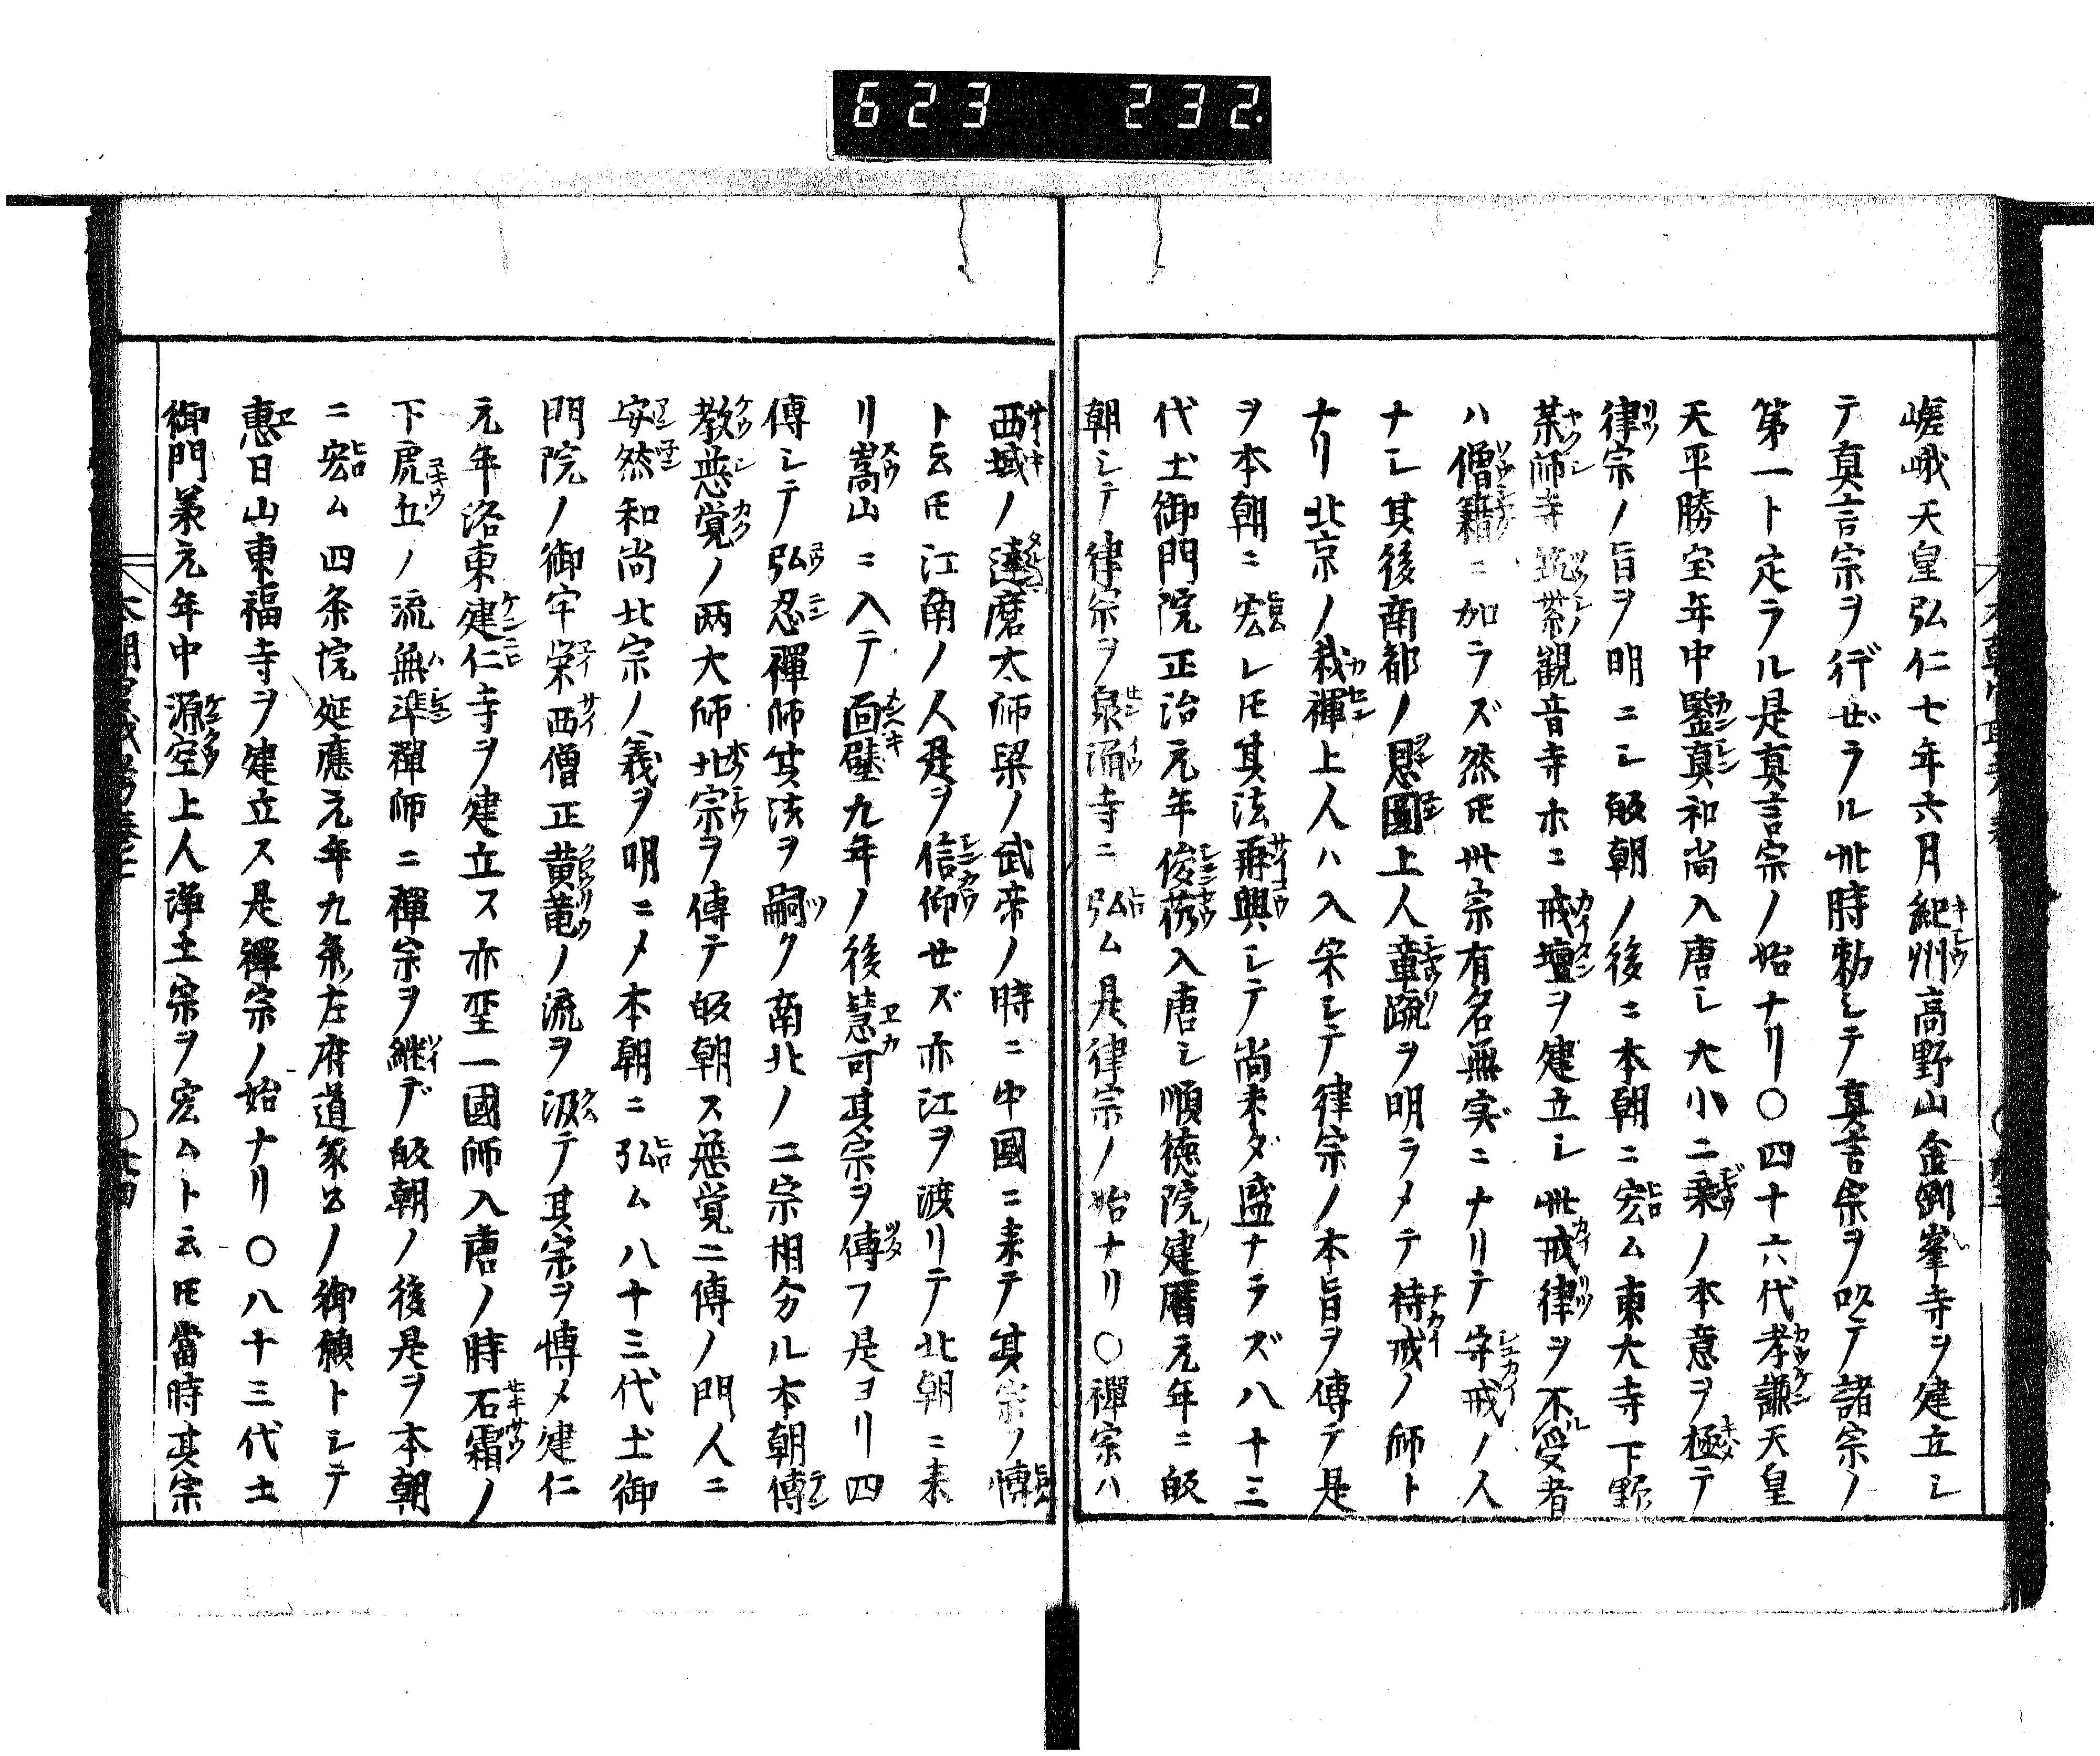 623 232.
嵯峨天皇弘仁七年六月紀州高野山金剛峯寺ヲ建立シ
テ真言宗ヲ行ゼラル此時勅シテ真言宗ヲ以テ諸宗ノ
第一ト定ラル是真言宗ノ始ナリ〇四十六代孝謙天皇
天平勝宝年中鑒真和尚入唐シ大小二乗ノ本意ヲ極テ
律宗ノ旨ヲ明ニシ皈朝ノ後ニ本朝ニ宏ム東大寺下野
薬師寺筑紫観音寺ホニ戒壇ヲ建立シ此戒律ヲ不受者
ハ僧籍ニ加ラズ然𪜈此宗有名無実ニナリテ守戒ノ人
ナシ其後南都ノ思圓上人章疏ヲ明ラメテ持戒ノ師ト
ナリ北京ノ我禅上人ハ入宋シテ律宗ノ本旨ヲ傳テ是
ヲ本朝ニ宏レ𪜈其法再興シテ尚未ダ盛ナラズ八十三
代土御門院正治元年俊芿入唐シ順徳院建暦元年ニ皈
朝シテ律宗ヲ泉涌寺ニ弘ム是律宗ノ始ナリ〇禪宗ハ
西域ノ達磨太師梁ノ武帝ノ時ニ中國ニ来テ其宗ノ博
ト云𪜈江南ノ人是ヲ信仰セズ亦江ヲ渡リテ北朝ニ来
リ嵩山ニ入テ面壁九年ノ後慧可其宗ヲ傳フ是ヨリ四
傳シテ弘忍禪師其法ヲ嗣ク南北ノ二宗相分ル本朝傳
教慈覚ノ两大師北宗ヲ傳テ皈朝ス慈覚二傳ノ門人ニ
安然和尚北宗ノ義ヲ明ニメ本朝ニ弘ム八十三代土御
門院ノ御宇栄西僧正黄竜ノ流ヲ汲テ其宗ヲ博メ建仁
元年洛東建仁寺ヲ建立ス亦聖一國師入唐ノ時石霜ノ
下虎丘ノ流無準禪師ニ禪宗ヲ継デ皈朝ノ後是ヲ本朝
ニ宏ム四条院延應元年九条左府道家公ノ御願トシテ
惠日山東福寺ヲ建立ス是禪宗ノ始ナリ〇八十三代土
御門承元年中源空上人浄土宗ヲ宏ムト云𪜈當時其宗